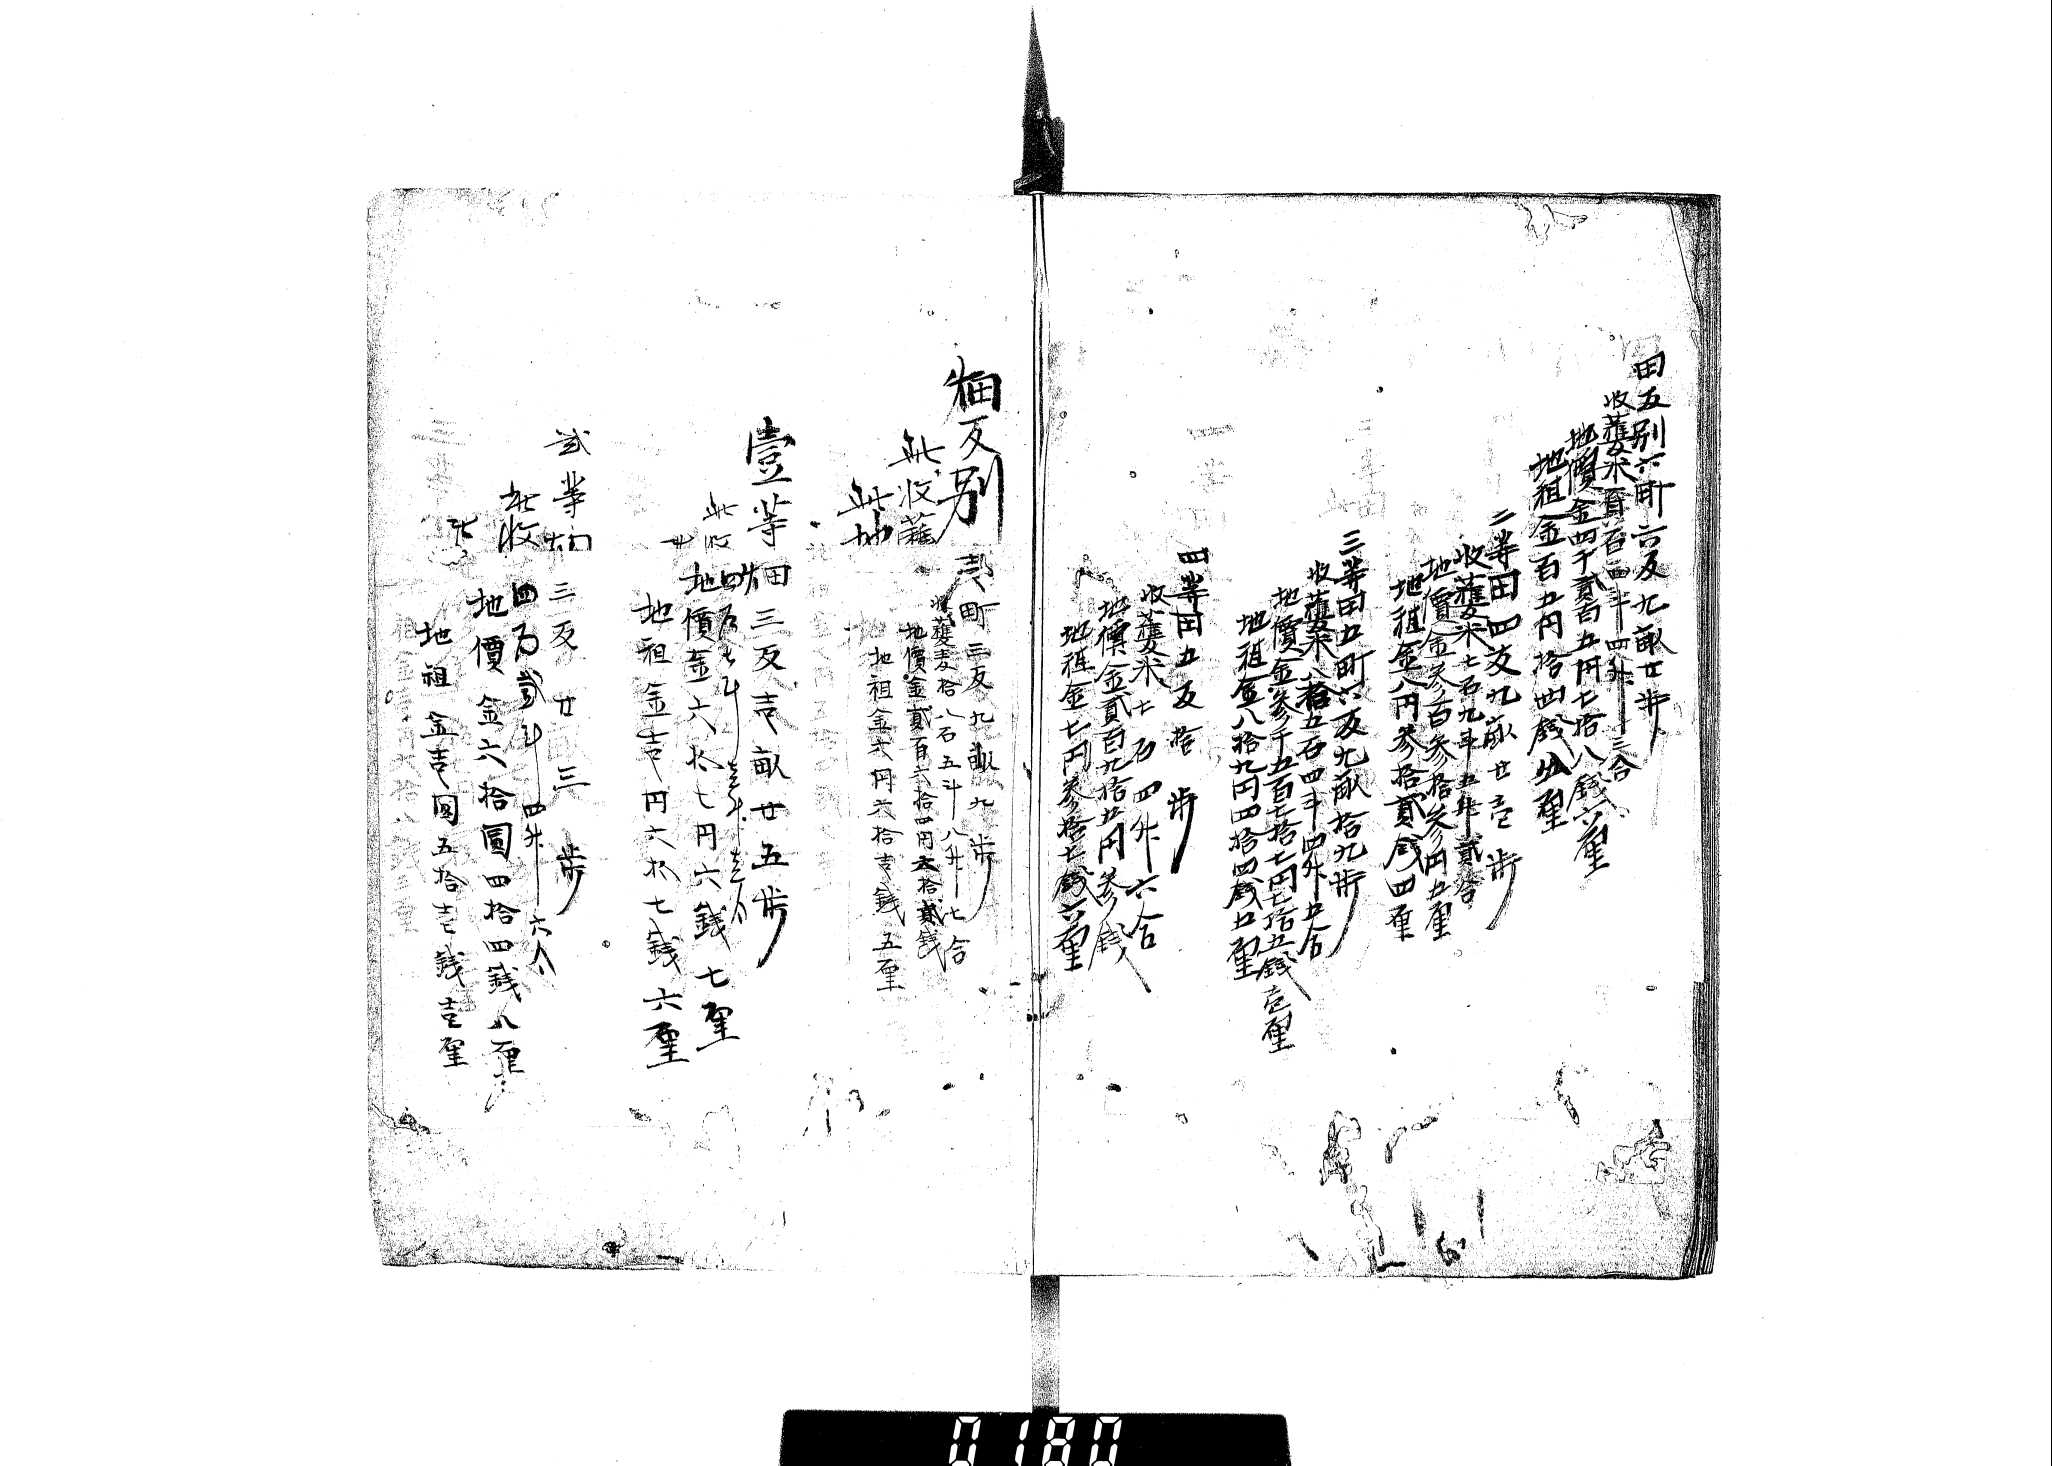 田反別六町六反九畝廿歩
收穫米百石四斗四升三合
地價金四千貳百五円七拾八銭六厘
地租金百五円拾四銭五厘
二等田四反九畝廿壱歩
收穫米七石九斗五升貳合
地價金参百参拾参円五厘
地租金八円参拾貳銭四厘
三等田五町六反九畝拾九歩
收穫米八拾五石四斗四升五合
地價金参千五百七拾七円七拾五銭壱厘
地租金八拾九円四拾四銭五厘
四等田五反拾歩
收穫米七石四升六合
地價金貳百九拾五円参銭
地租金七円参拾七銭六厘
畑反別 壱町三反九畝九歩
此收穫
收穫麦拾八石五斗八升七合
此地
地價金貳百六拾四円六拾貳銭
地租金六円六拾壱銭五厘
壹等畑三反壱畝廿五歩
此收四石七斗壱升壱合
地價金六拾七円六銭七厘
地租金壱円六拾七銭六厘
貳等畑三反廿三歩
此收四石貳斗四升六合
地價金六拾圓四拾四銭八厘
地租金壱圓五拾壱銭壱厘
0180